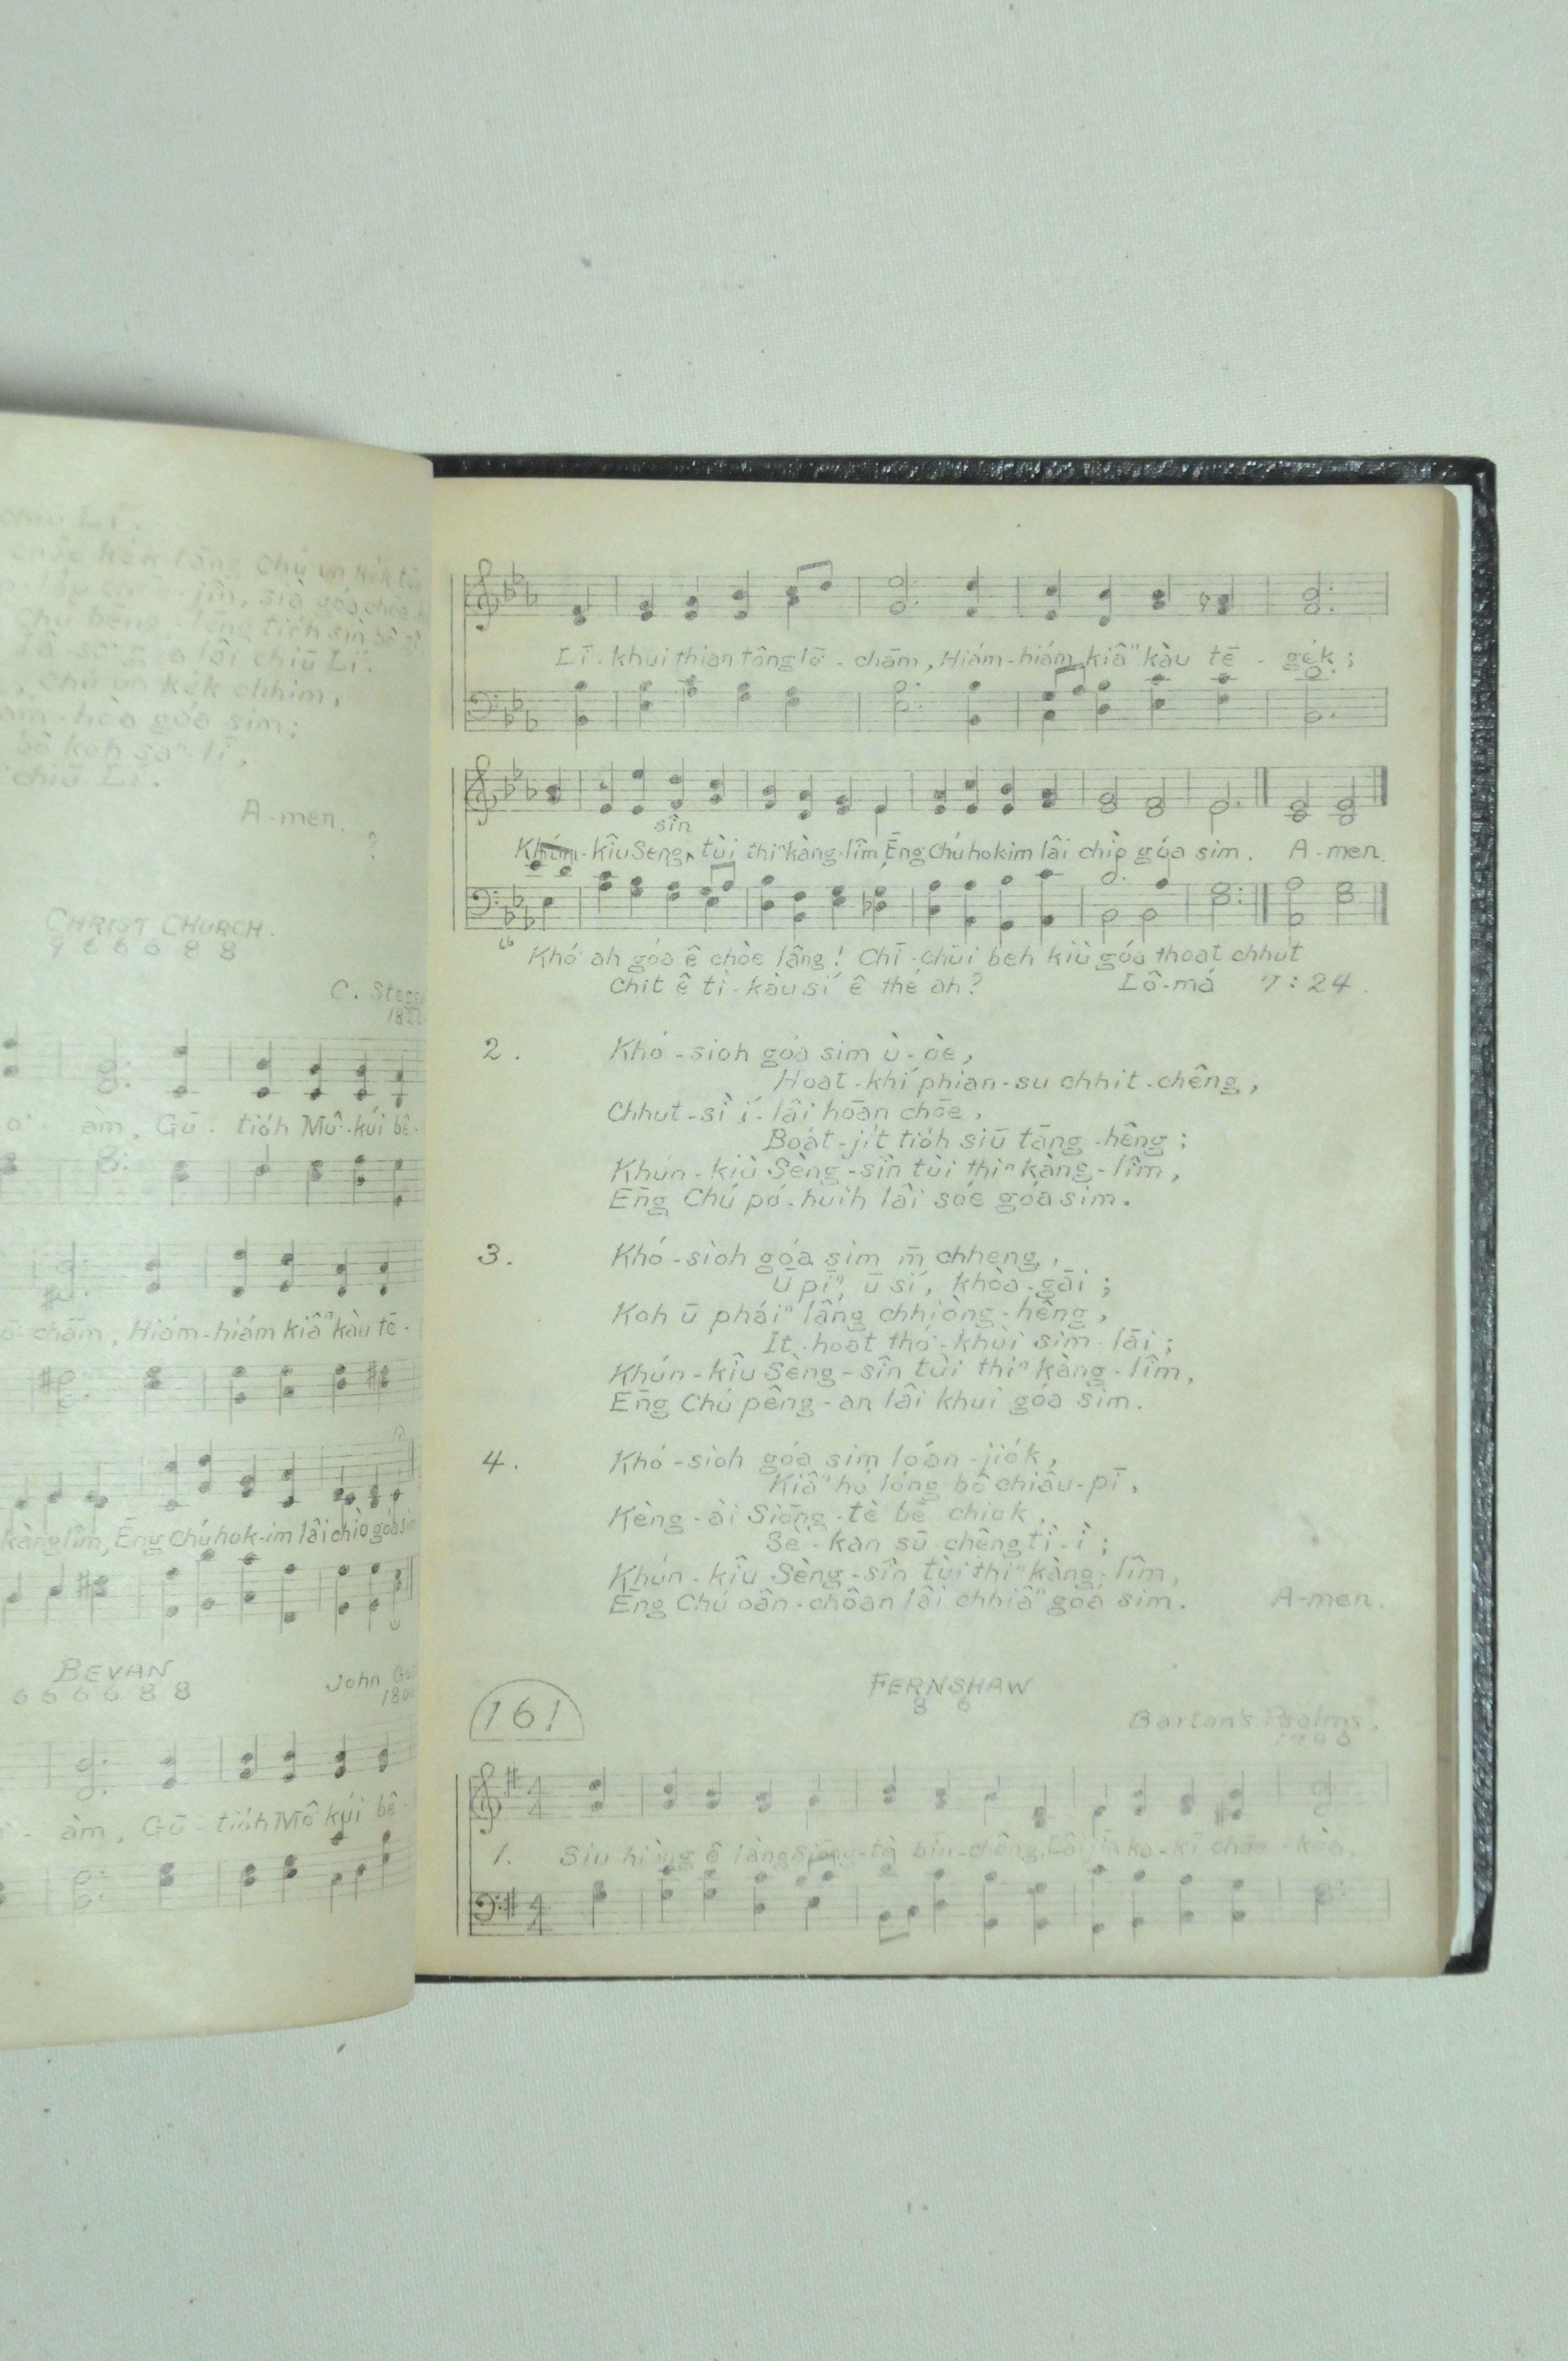 chiū Lí.
kek tāng Chú un kek
jîn, sià góa chōe
Chú bêng, êng tio̍h sìn bô
lâi chiū Lí.
Chú un kek chhim,
hòa góa sim;
bô koh saⁿ-lī,
chiū Lí.
A-men.
?
CHRIST CHURCH.
9 6 6 6 8 8
C. Stegg
àm, Gū-tio̍h Mô-kúi bê-
chām, Hiám-hiám kiâⁿ kàu tē-
kàng lîm, Ēng Chú hok-im lâi chìo góa sim
BEVAN
6 6 6 6 8 8
John Go
180
àm, Gū-tio̍h Mô-kúi bê-
Lī-khui thian tông lō-chām, Hiám-hiám kiâⁿ kàu tē-ge̍k;
sîn
Khún-kîu Seng tùi thiⁿ kàng-lîm, Ēng Chú hokim lâi chìo góa sim. A-men.
"Khó͘ ah góa ê chòe lâng! Chī-chūi beh kiù góa thoat chhut
Chit ê tì-kàu sí ê thé ah? Lô-má 7:24.
2. Khó-sioh góa sim ù-òe,
Hoat-khí phian-su chhit-chêng,
Chhut-sì í-lâi hōan chōe,
Boa̍t-ji̍t tio̍h siū tāng-hêng;
Khún-kiû Sèng-sîn tùi thiⁿ kàng-lîm,
Ēng Chú pó-huih lâi sóe góa sim.
3. Khó-sioh góa sim m̄ chheng,
Ū pīⁿ, ū sí, khòa-gāi;
Koh ū pháiⁿ lâng chhiòng-hêng,
It-hoat thó͘-khùi sim-lāi;
Khún-kîu Sèng-sîn tùi thiⁿ kàng-lîm,
Ēng Chú pêng-an lâi khui góa sim.
4. Khó-sioh góa sim loán-jio̍k,
Kiâⁿ hó lóng bô chiâu-pī,
Kèng-ài Siōng-tè bē chiok,
Sè-kan sū chêng tì-ì;
Khún-kîu Sèng-sîn tùi thiⁿ kàng-lîm,
Ēng Chú oân-chôan lâi chhiâⁿ góa sim. A-men.
161
FERNSHAW
8 6
Barton's Psalms,
1. Siu hiòng ê lâng Siōng-tè bīn-chêng, Lâi jīn ka-kī chōe-kòa,